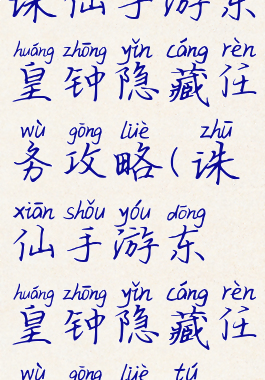 诛仙手游东
huáng zhōng yǐn cáng rèn
皇钟隐藏任
wù gōng lüè zhū
务攻略(诛
xiān shǒu yóu dōng
仙手游东
huáng zhōng yǐn cáng rèn
皇钟隐藏任
wù gōng lüè tú